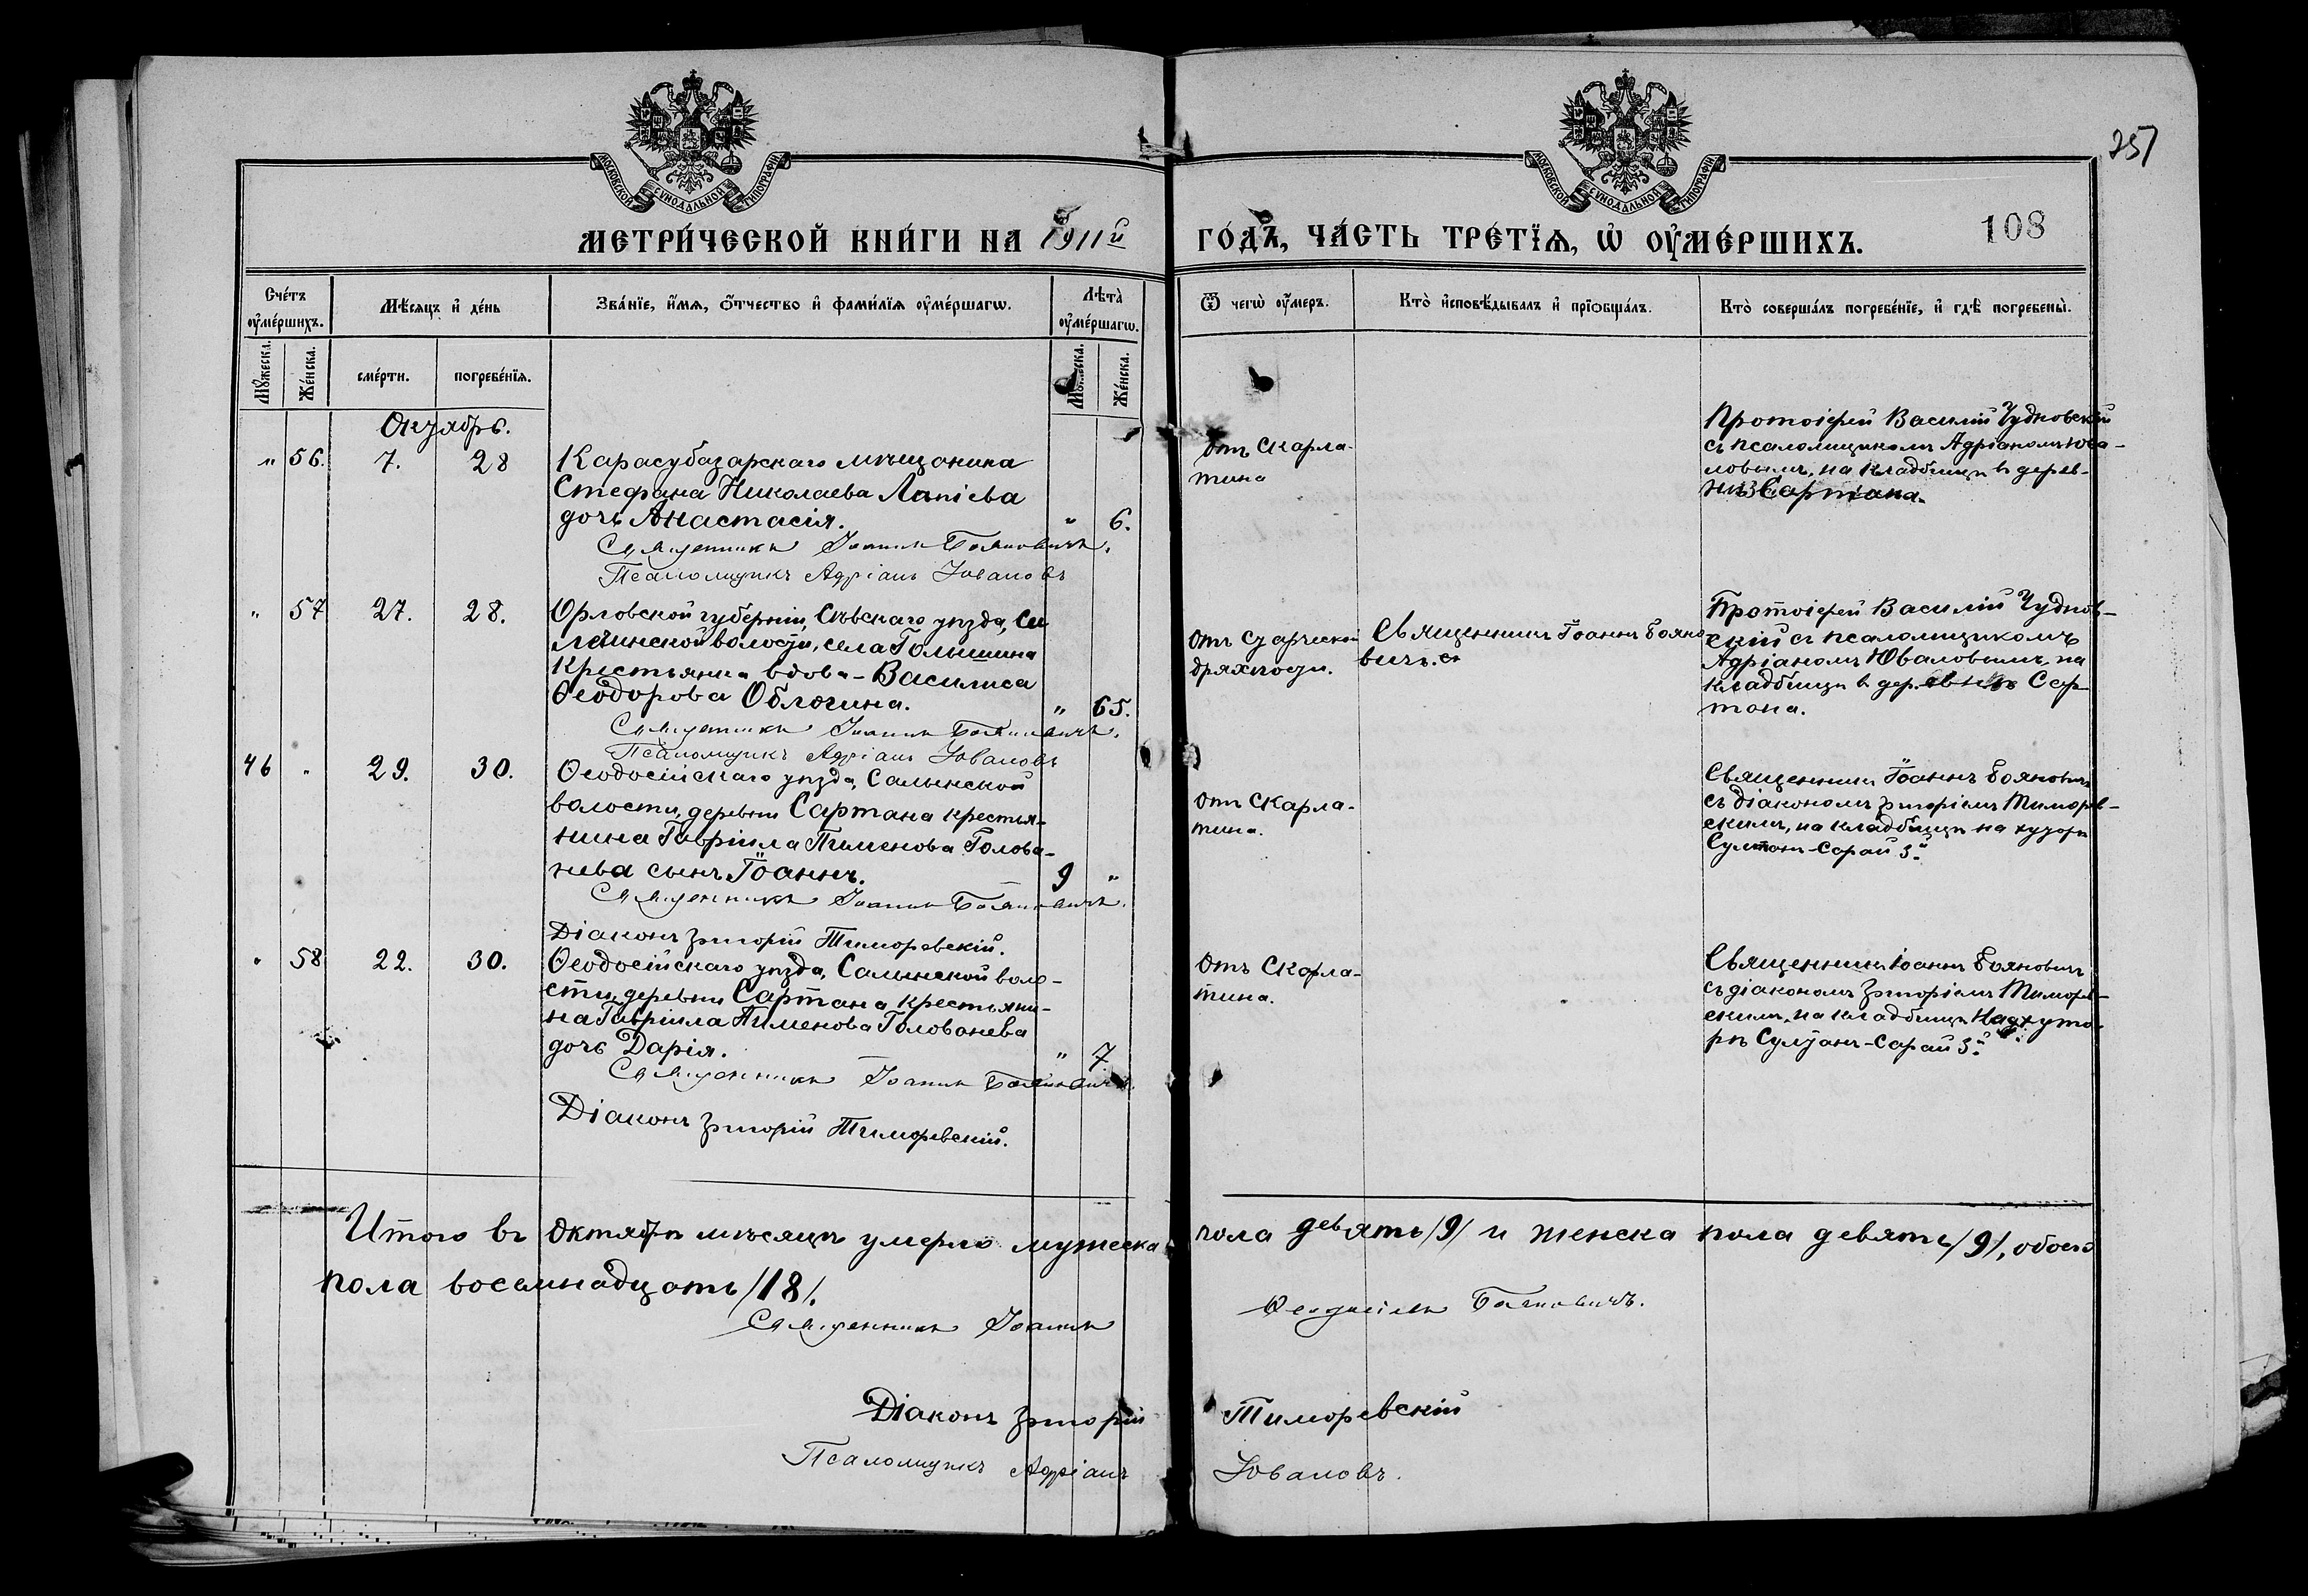 МОСКОВСКОЙ СѴНОДАЛЬНОЙ ТИПОГРАФІИ
МОСКОВСКОЙ СѴНОДАЛЬНОЙ ТИПОГРАФІИ
257
МЕТРИ́ЧЕСКОЙ КНИ́ГИ НА 1911й
ГО́ДЪ, ЧА́СТЬ ТРЕ́ТЇѦ, Ѡ҆ ОУ҆МЕ́РШИХЪ.
108
Сче́тъ оу҆ме́ршихъ.
Мѣ́сѧцъ и҆ де́нь
Зва́нїе, и҆́мѧ, ѻ҆́тчество и҆ фами́лїѧ оу҆ме́ршагѡ.
Лѣта̀ оу҆ме́ршагѡ.
Ѿ чегѡ̀ оу҆́меръ.
Кто̀ и҆сповѣ́дывалъ и҆ прїѻбща́лъ.
Кто̀ соверша́лъ погребе́нїе, и҆ гдѣ̀ погребены̀.
Мꙋ́жеска.
Же́нска.
сме́рти.
погребе́нїѧ.
Мꙋ́жеска.
Же́нска.
Октябрь.
" 56. 7. 28
Карасубазарскаго мѣщанина
Стефана Николаева Лапіева
дочь Анастасія. " 6.
Священникъ Іоаннъ Бояновичъ.
Псаломщикъ Адріанъ Юваловъ
Отъ скарла-
тина
Протоіерей Василій Чудновскій
съ псаломщикомъ Адріаномъ Юва-
ловымъ, на кладбищѣ въ дерев-
нѣ Сартана.
" 57 27. 28.
Орловской губерніи, Сѣвскаго уѣзда,
волости, села Голышина
Крестьянка вдова - Василиса
Ѳеодорова Облогина. " 65.
Священникъ Іоаннъ Бояновичъ.
Псаломщикъ Адріанъ Юваловъ
Отъ старческой
дряхлости.
Священникъ Іоаннъ Бояно
вичъ.
Протоіерей Василій Чуднов-
скій съ псаломщикомъ
Адріаномъ Юваловымъ, на
кладбищѣ въ деревнѣ Сар-
тана.
46 " 29. 30.
Ѳеодосійскаго уѣзда, Салынской
волости, деревни Сартана крестья-
нина Гавріила Пименова Голова-
нева сынъ Іоаннъ. 9 "
Священникъ Іоаннъ Бояновичъ.
Діаконъ Григорій Тиморевскій.
Отъ скарла-
тина.
Священникъ Іоаннъ Бояновичъ
съ діакономъ Григоріемъ Тиморев-
скимъ, на кладбищѣ на хуторѣ
Султанъ-Сарай 3й
" 58 22. 30.
Ѳеодосійскаго уѣзда, Салынской воло-
сти, деревни Сартана крестьяни-
на Гавріила Пименова Голованева
дочь Дарія. " 7
Священникъ Іоаннъ Бояновичъ.
Діаконъ Григорій Тиморевскій.
Отъ скарла-
тина.
Священникъ Іоаннъ Бояновичъ
съ діакономъ Григоріемъ Тиморев-
скимъ, на кладбищѣ на хуто-
рѣ Султанъ-Сарай 3й
Итого въ Октябрѣ мѣсяцѣ умерло мужеска пола девять /9/ и женска пола девять /9/, обоего
пола восемнадцать /18/.
Священникъ Іоаннъ Бояновичъ.
Діаконъ Григорій Тиморевскій
Псаломщикъ Адріанъ Юваловъ.